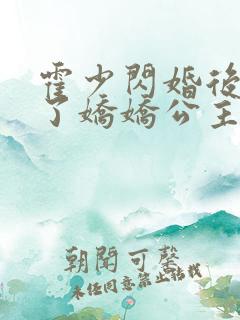 霍少閃婚後
了嬌嬌公主
朝聞可馨
未经同意禁止搭载